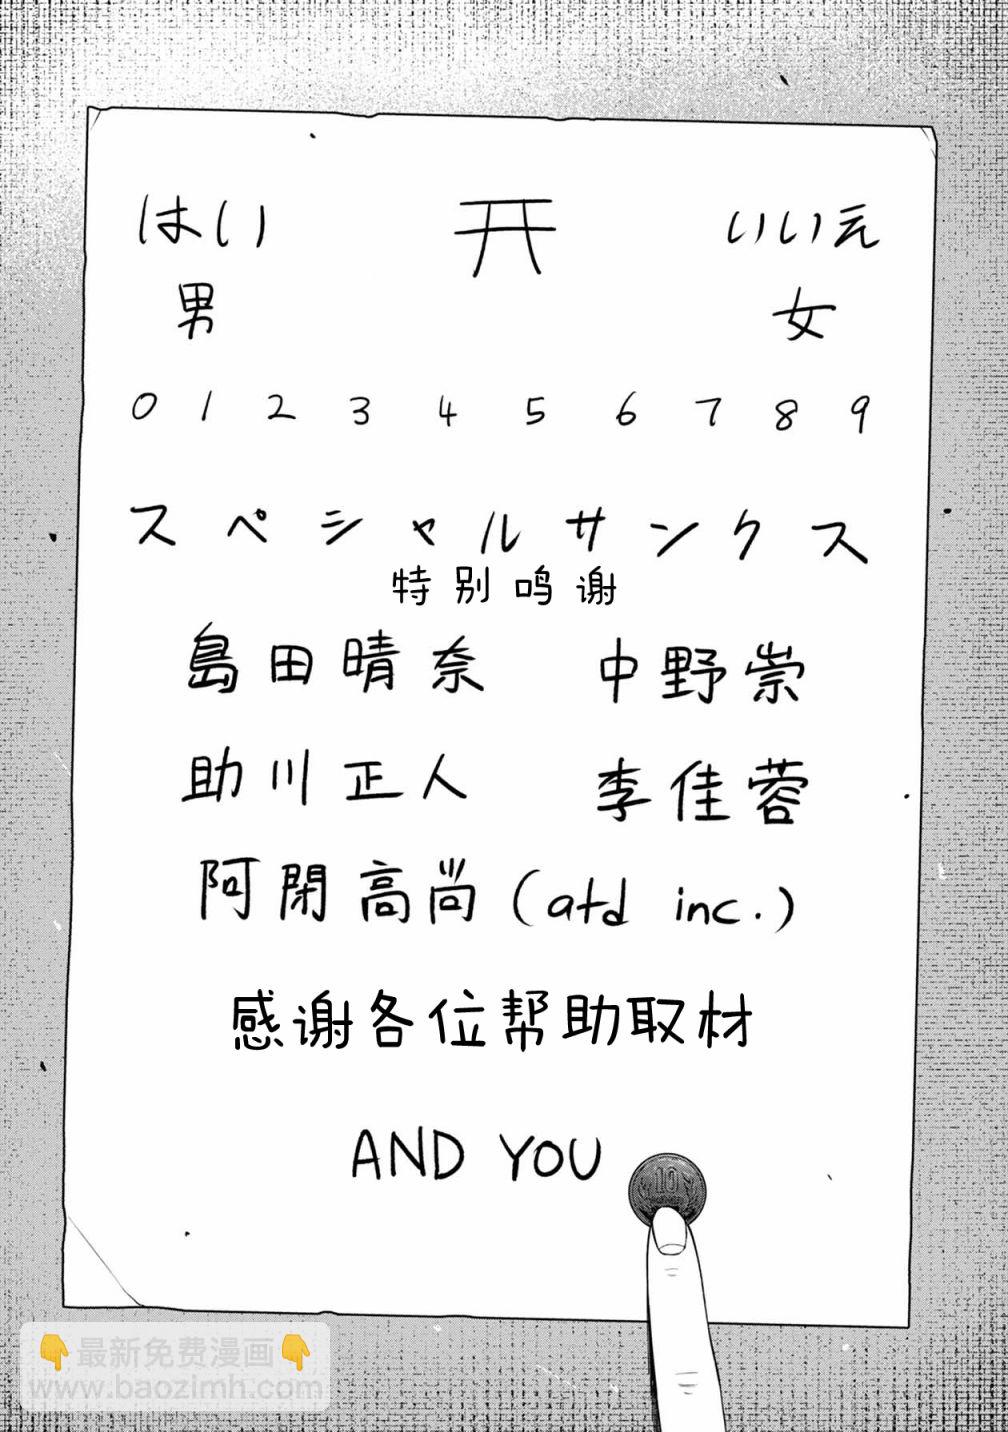 はい いいえ
男 女
0 1 2 3 4 5 6 7 8 9
スペシャルサンクス
特别鸣谢
島田晴奈 中野崇
助川正人 李佳蓉
阿閉高尚(atd inc.)
感谢各位帮助取材
AND YOU
10
👇最新免费漫画👇
www.baozimh.com